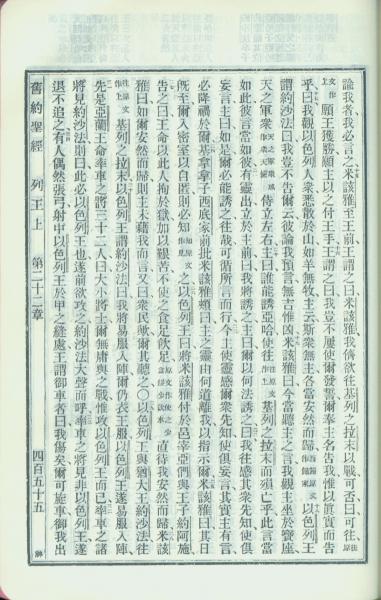 論我者我必言之米該雅至王前王謂之曰米該雅我儕欲往基列之拉末以戰可否曰可往
願王獲勝願主以之付王手王謂之曰我豈不屢使爾發誓爾奉主名告我惟以眞實而告
乎曰我觀以色列人衆悉散於山如羊無牧主云斯衆無主各當安然而歸以色列王
謂約沙法曰我豈不告爾云彼論我預言無吉惟凶米該雅曰今當聽主之言我觀主坐於寶座
天之軍衆侍立左右主曰誰能誘亞哈使往基列之拉末而殞亡乎此言當
如此彼言當如彼有靈出立於主前曰我將誘之主曰爾以何法誘之曰我往感其衆先知使俱
妄言主曰如是爾必能誘之往哉可循所言而行今主使靈感爾衆先知使俱妄言其實主有言
必降禍於爾基拿拿子西底家前批米該雅頰曰主之靈由何道離我以指示爾米該雅曰其日
旣至爾入密室以自匿則必知之以色列王曰將米該雅付於邑宰亞們與王子約阿施
告之曰王命以此人拘於獄加以艱苦不使之食足飲足直待我安然而歸米該
雅曰如爾安然而歸則主未藉我而言又曰衆民歟爾其聽之〇以色列王與猶大王約沙法往
基列之拉末以色列王謂約沙法曰我將易服入陣爾仍衣王服以色列王遂易服入陣
先是亞蘭王命率車之將三十二人曰大小將士爾無庸與之戰惟攻以色列王而已率車之諸
將見約沙法則曰此必以色列王也遂前欲攻之約沙法大聲而呼率車之將見非以色列王遂
退不追之有人偶然張弓射中以色列王於甲之縫處王謂御車者曰我傷矣爾可旋車御我出
舊約聖經 列王上 第二十二章 四百五十五